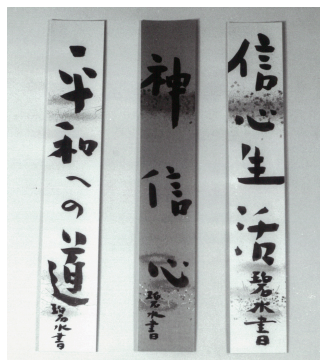 信心生活
碧水書
神信心
碧水書
平和への道
碧水書